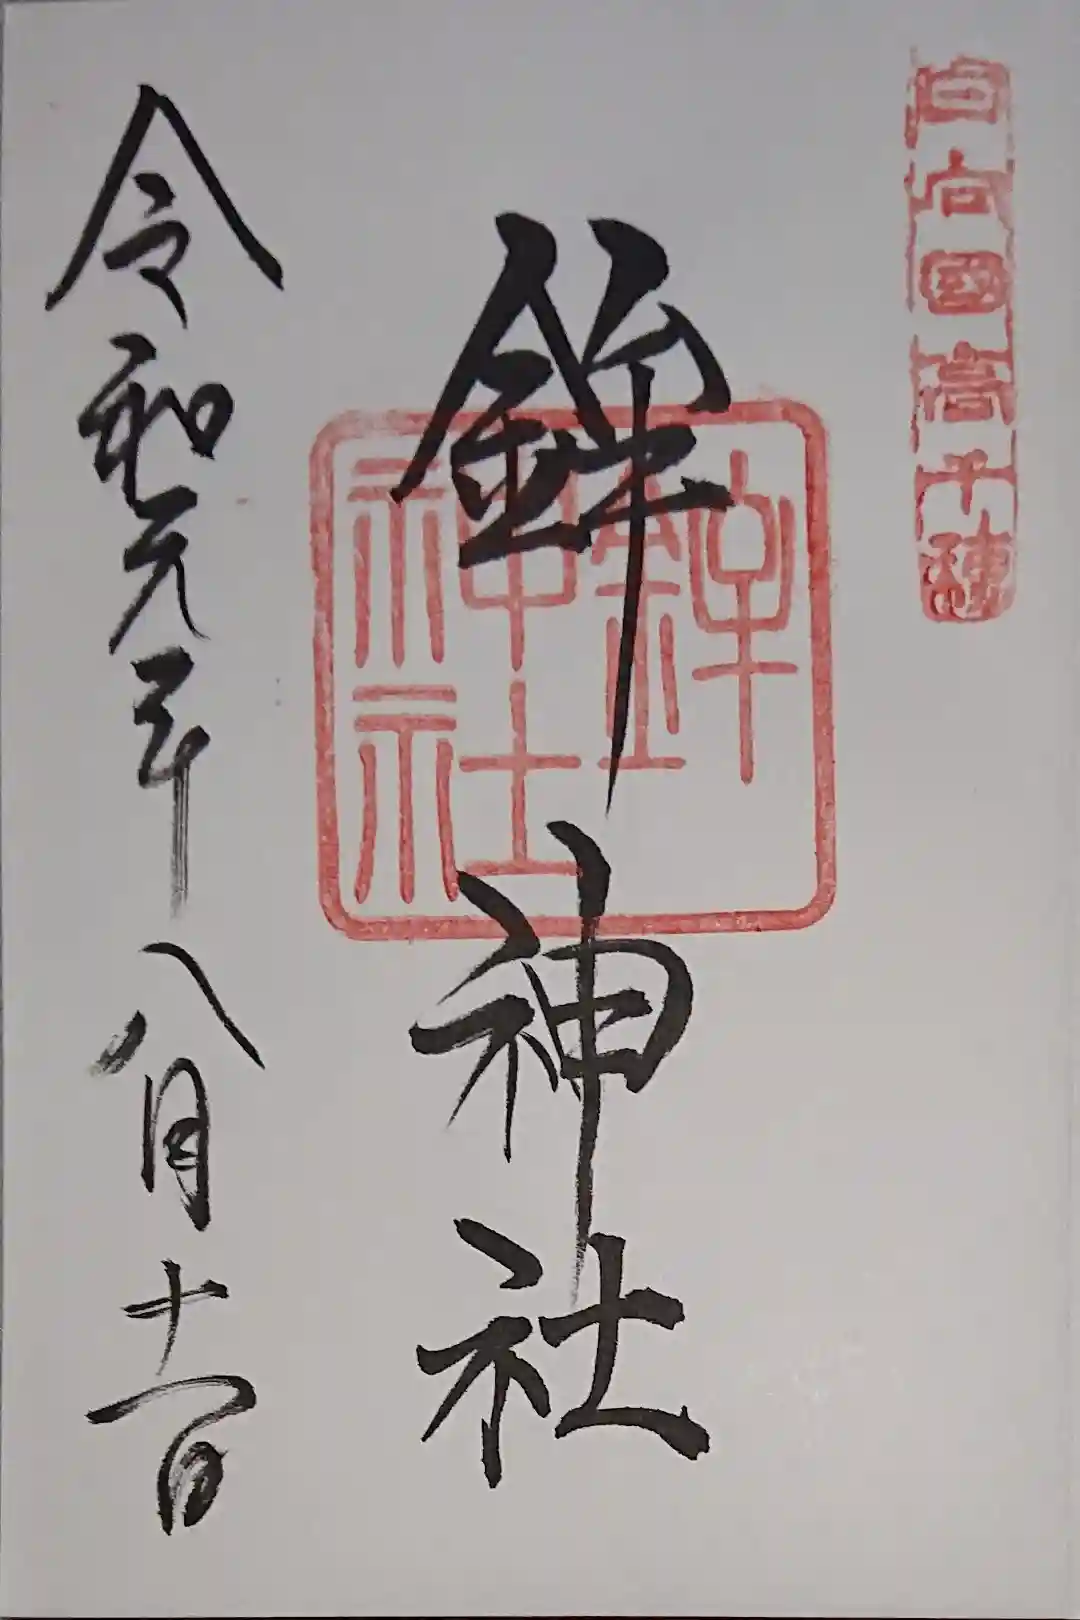 日向國高千穂
鉾神社
鉾
神社
令和元年八月十一日